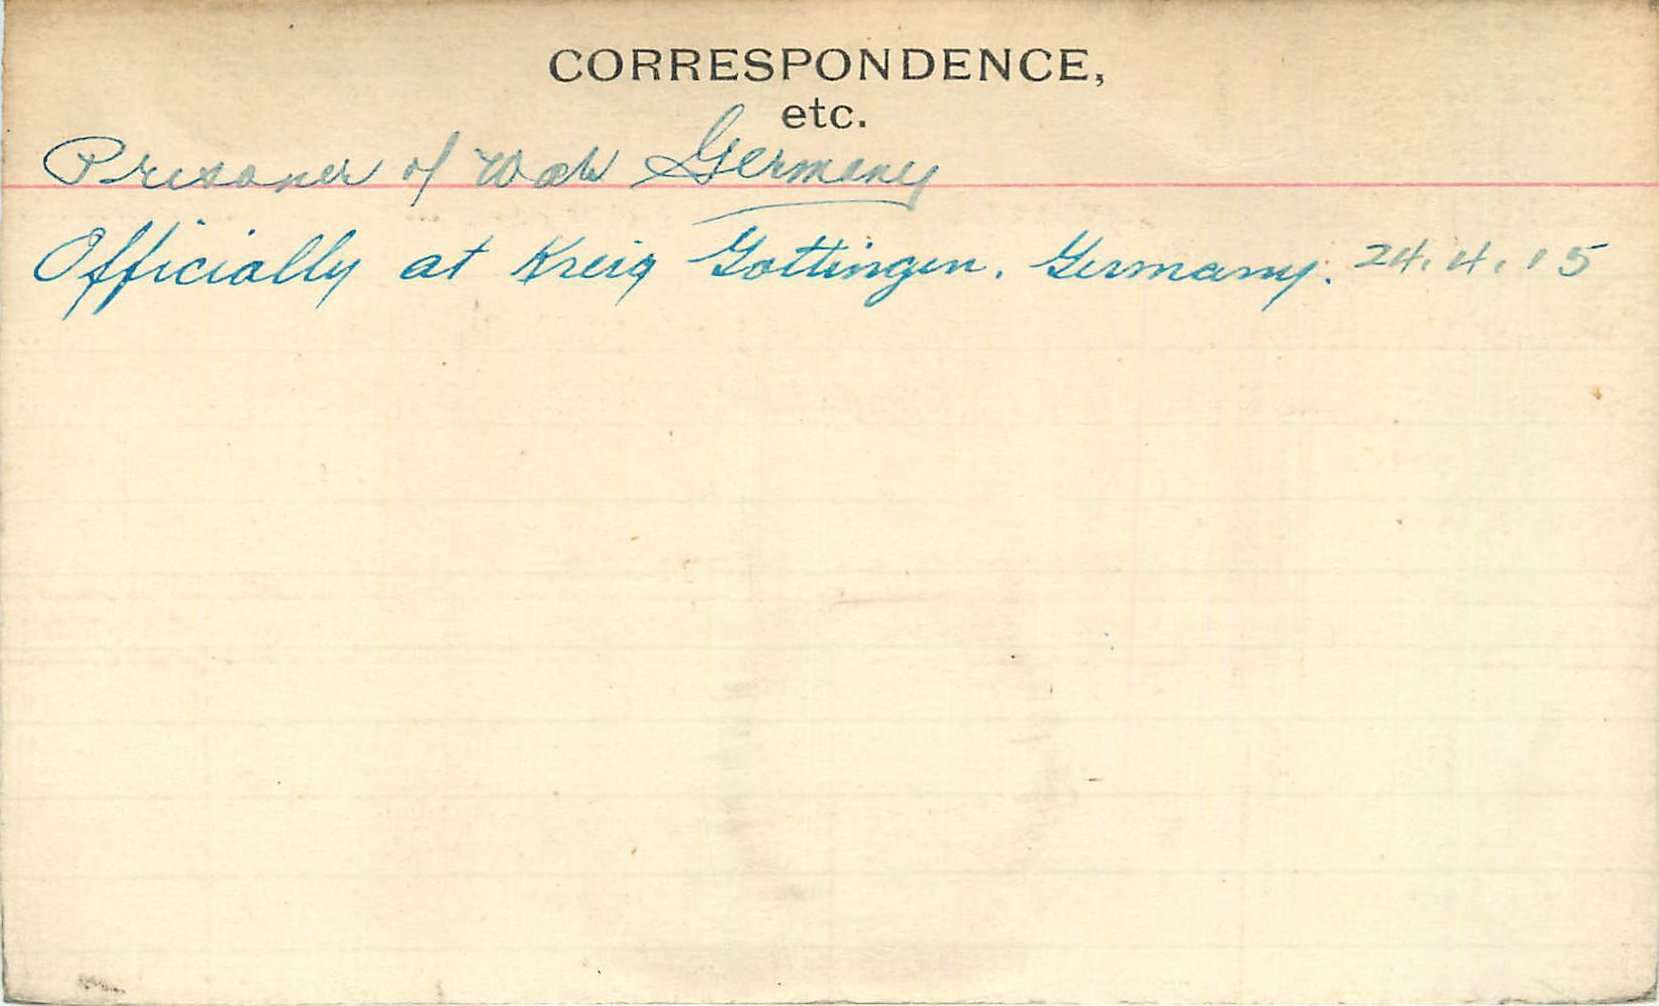 CORRESPONDENCE,
etc.
Prisoner of War Germany
Officially at Kreig Gottingen. Germany. 24.4.15